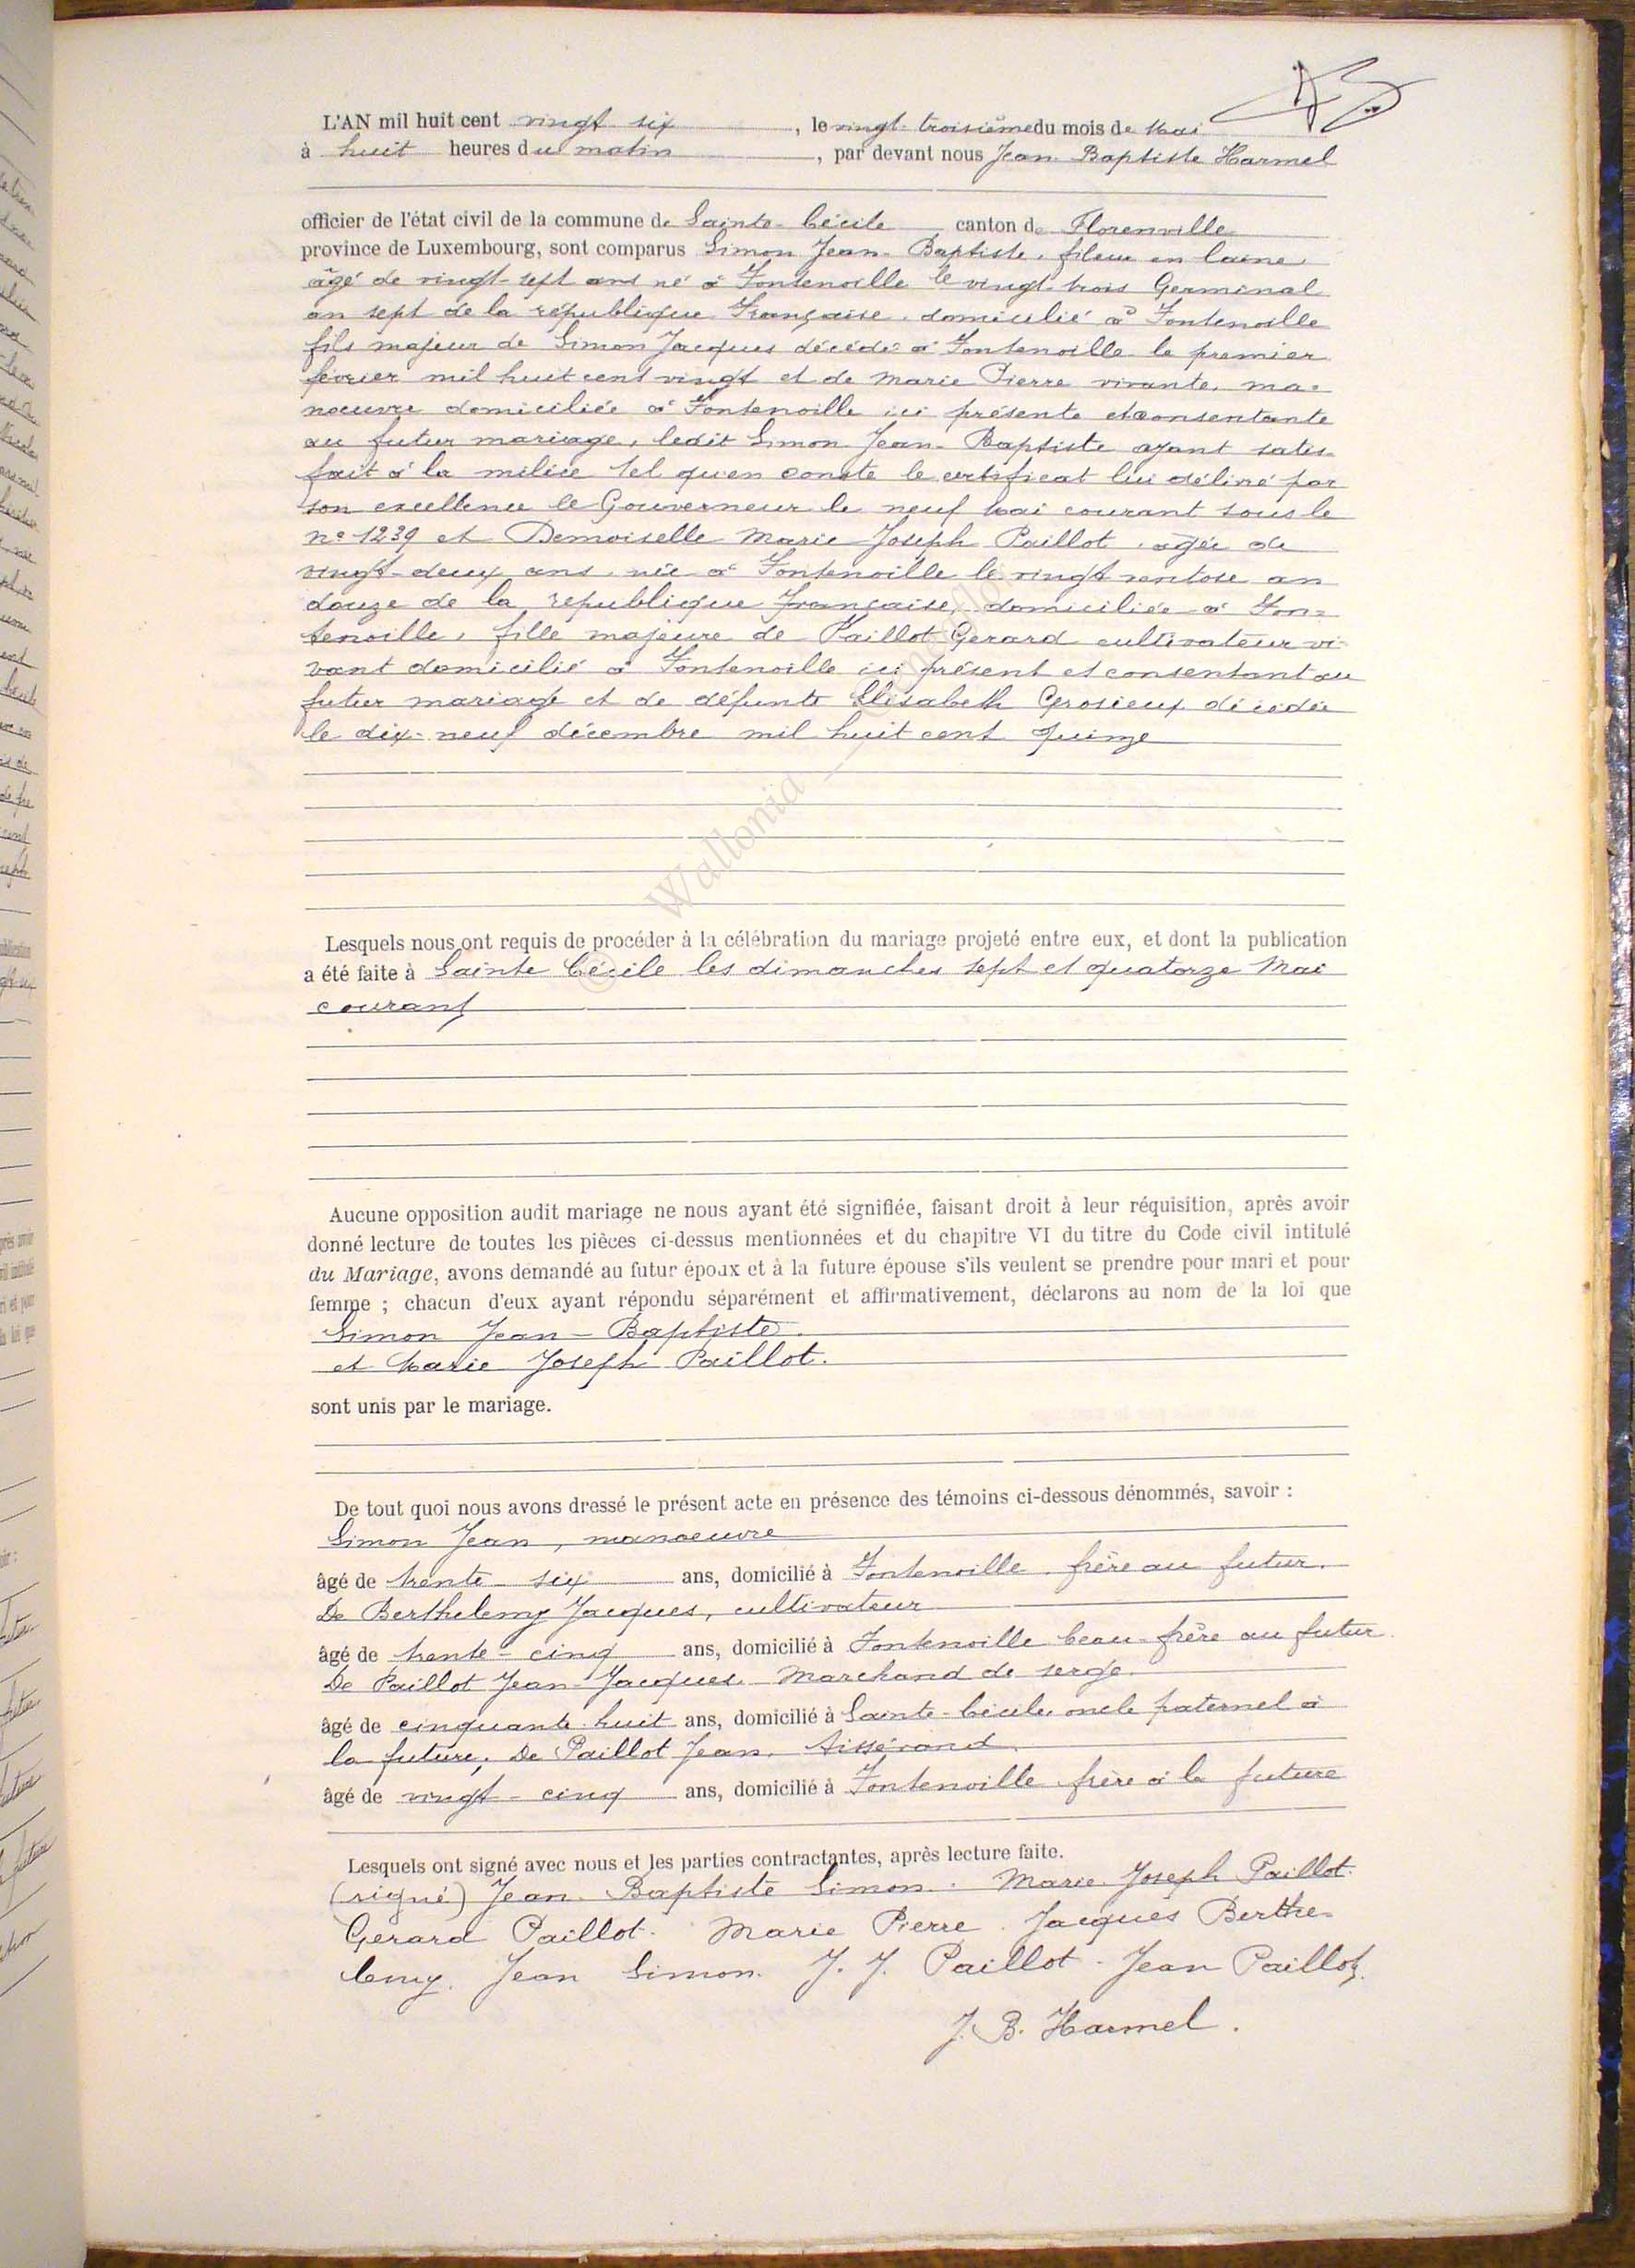 L'AN mil huit cent vingt six, le vingt-troisième du mois de Mai
à huit heures du matin, par devant nous Jean-Baptiste Harmel
officier de l'état civil de la commune de Sainte-Cécile canton de Florenville
province de Luxembourg, sont comparus Simon Jean-Baptiste, fileur en laine,
âgé de vingt-sept ans né à Fontenoille le vingt-trois Germinal
an sept de la république Française domicilié à Fontenoille
fils majeur de Simon Jacques décédé à Fontenoille le premier
février mil huit cent vingt et de Marie Pierre vivante, ma-
noeuvre domiciliée à Fontenoille ici présente et consentante
au futur mariage, ledit Simon Jean-Baptiste ayant satis-
fait à la milice tel qu'en conste le certificat lui délivré par
son excellence le Gouverneur le neuf Mai courant sous le
n° 1239 et Demoiselle Marie Joseph Paillot, agée de
vingt-deux ans, née à Fontenoille le vingt ventose an
douze de la république française, domiciliée à Fon-
tenoille, fille majeure de Paillot Gerard cultivateur vi-
vant domicilié à Fontenoille ici présent et consentant au
futur mariage et de défunte Elisabeth Grosieux décédée
le dix-neuf décembre mil huit cent quinze
Wallonia
Lesquels nous ont requis de procéder à la célébration du mariage projeté entre eux, et dont la publication
a été faite à Sainte Cécile les dimanches sept et quatorze Mai
courant
Aucune opposition audit mariage ne nous ayant été signifiée, faisant droit à leur réquisition, après avoir
donné lecture de toutes les pièces ci-dessus mentionnées et du chapitre VI du titre du Code civil intitulé
du Mariage, avons demandé au futur époux et à la future épouse s'ils veulent se prendre pour mari et pour
femme ; chacun d'eux ayant répondu séparément et affirmativement, déclarons au nom de la loi que
Simon Jean-Baptiste.
et Marie Joseph Paillot.
sont unis par le mariage.
De tout quoi nous avons dressé le présent acte en présence des témoins ci-dessous dénommés, savoir :
Simon Jean, manoeuvre
âgé de trente-six ans, domicilié à Fontenoille, frère au futur.
De Berthelemy Jacques, cultivateur
âgé de trente-cinq ans, domicilié à Fontenoille beau-frère au futur.
De Paillot Jean-Jacques Marchand de serge.
âgé de cinquante-huit ans, domicilié à Sainte-Cécile, oncle paternel à
la future, De Paillot Jean, tissérand.
âgé de vingt-cinq ans, domicilié à Fontenoille frère à la future
Lesquels ont signé avec nous et les parties contractantes, après lecture faite.
(signé) Jean-Baptiste Simon. Marie Joseph Paillot.
Gerard Paillot. Marie Pierre. Jacques Berthe-
lemy. Jean Simon. J. J. Paillot. Jean Paillot.
J. B. Harmel.